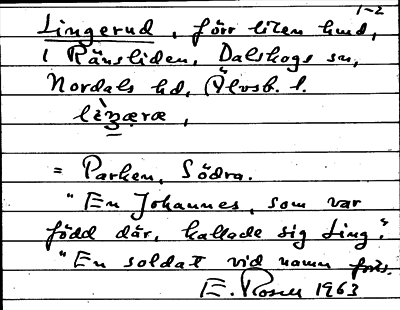 1-2
Lingerud, förr liten lund,
i Ränsliden, Dalskogs sn,
Nordals hd, Älvsb. l.
= Parken, Södra.
"En Johannes, som var
född där, kallade sig Ling."
"En soldat vid namn
E. Rosell 1963